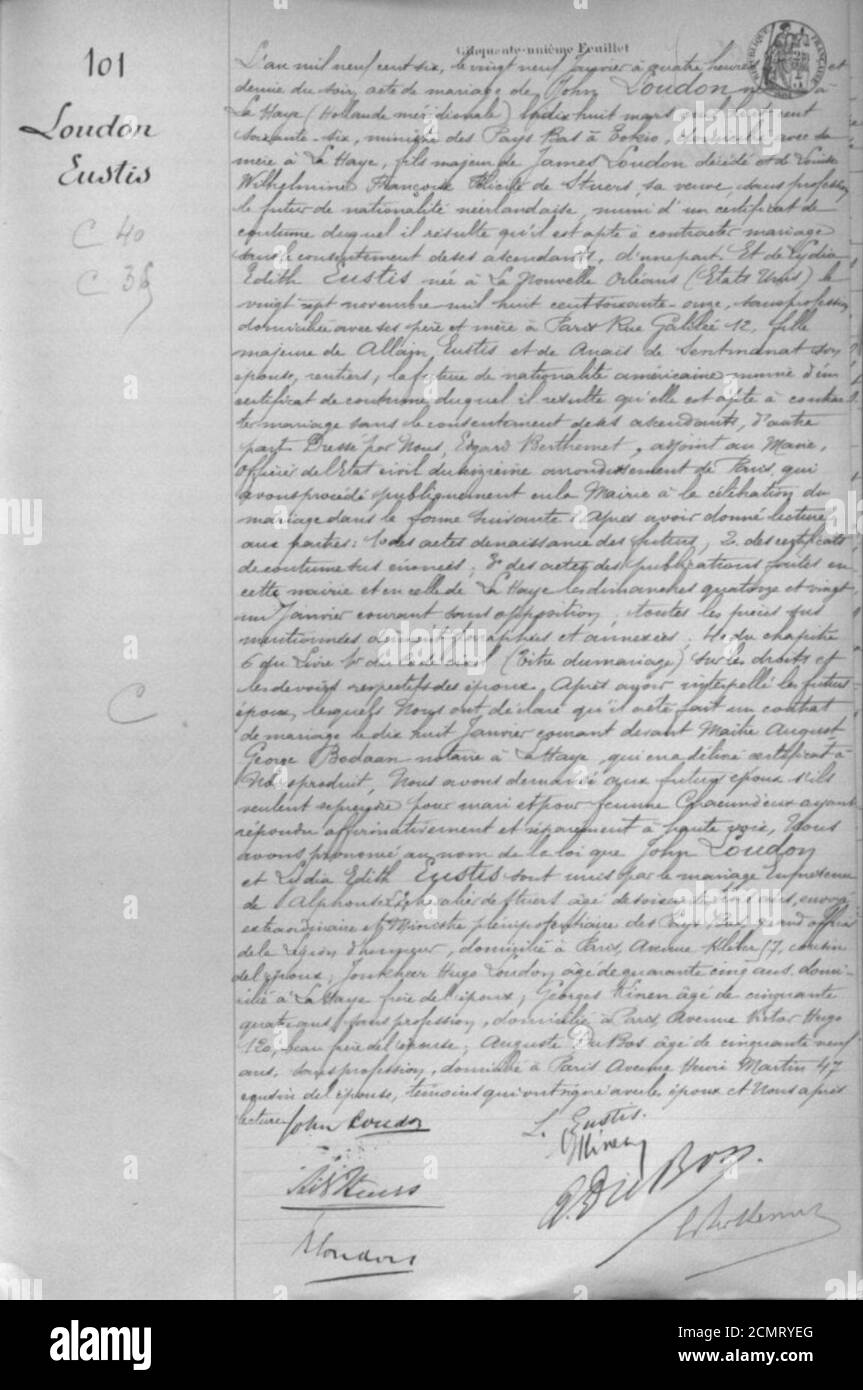 Cinquante-unième Feuillet
101
Loudon
Eustis
C 40
C 38
C
L'an mil neuf cent six, le vingt neuf Janvier à quatre heures et
demie du soir, acte de mariage de John Loudon né à
La Haye (Hollande méridionale) le dix huit mars mil huit cent
soixante-six, ministre des Pays Bas à Tokio, domicilié avec sa
mère à La Haye, fils majeur de James Loudon décédé et de Louise
Wilhelmine Françoise Félicité de Stuers, sa veuve, sans profession
le futur de nationalité néerlandaise, muni d'un certificat de
coutume duquel il résulte qu'il est apte à contracter mariage
sans le consentement de ses ascendants, d'une part. Et de Lydia
Edith Eustis née à La Nouvelle Orléans (Etats Unis) le
vingt sept novembre mil huit cent soixante-onze, sans profession
domiciliée avec ses père et mère à Paris Rue Galilée 12, fille
majeure de Allain Eustis et de Anaïs de Sentmanat son
épouse, rentiers, la future de nationalité américaine munie d'un
certificat de coutume duquel il résulte qu'elle est apte à contrac
ter mariage sans le consentement de ses ascendants, d'autre
part Dressé par Nous, Edgard Berthemet, adjoint au Maire,
Officier de l'Etat civil du seizième arrondissement de Paris, qui
avons procédé publiquement en la Mairie à la célébration du
mariage dans la forme suivante: Après avoir donné lecture
aux parties: 1o des actes de naissance des futurs, 2o des certificats
de coutume sus énoncés; 3o des actes des publications faites en
cette mairie et en celle de La Haye les dimanches quatorze et vingt
un Janvier courant sans opposition, toutes les pièces sus
mentionnées dûment paraphées et annexées; 4o du chapitre
6 du Livre 1er du Code civil (Titre du mariage) sur les droits et
les devoirs respectifs des époux. Après avoir interpellé les futurs
époux, lesquels Nous ont déclaré qu'il a été fait un contrat
de mariage le dix huit Janvier courant devant Maître August
George Bodaan notaire à La Haye, qui en a délivré certificat à
Nous produit, Nous avons demandé aux futurs époux s'ils
veulent se prendre pour mari et pour femme Chacun d'eux ayant
répondu affirmativement et séparément à haute voix, Nous
avons prononcé au nom de la loi que John Loudon
et Lydia Edith Eustis sont unis par le mariage En présence
de Alphonse chevalier de Stuers âgé de soixante trois ans, envoyé
extraordinaire et Ministre plénipotentiaire des Pays Bas, grand officier
de la Légion d'honneur, domicilié à Paris, Avenue Kléber 57, cousin
de l'époux; Jonkheer Hugo Loudon âgé de quarante cinq ans domi-
cilié à La Haye frère de l'époux; Georges Kinen âgé de cinquante
quatre ans, sans profession, domicilié à Paris, Avenue Victor Hugo
120, beau frère de l'épouse; Auguste Du Bos âgé de cinquante neuf
ans, sans profession, domicilié à Paris Avenue Henri Martin 47
cousin de l'épouse, témoins qui ont signé avec les époux et Nous après
lecture.
John Loudon
L. Eustis.
GKinen
A. Stuers
A. Du Bos.
HLoudon
E Berthemet
alamy
2CMRYEG
www.alamy.com